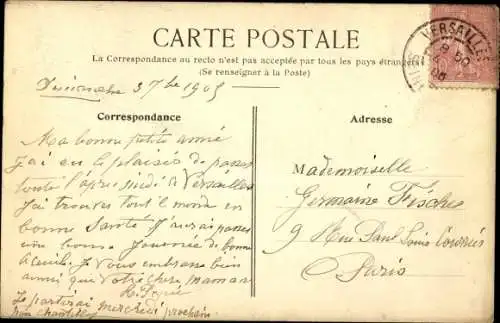 CARTE POSTALE
La Correspondance au recto n'est pas acceptée par tous les pays étrangers
(Se renseigner à la Poste)
VERSAILLES
Dimanche 3 7bre 1905
Correspondance
Adresse
Ma bonne petite amie
J'ai eu le plaisir de passer
toute l'après midi à Versailles
J'ai trouvé tout l'monde en
bonne Santé J'aurai passé
une bonne Journée de bonne
acceuil. Je vous embrasse bien
ainsi que votre chère maman
Je partirai mercredi prochain
pour Chantilly
Mademoiselle
Germaine Fischer
9 Rue Paul Louis Courier
Paris